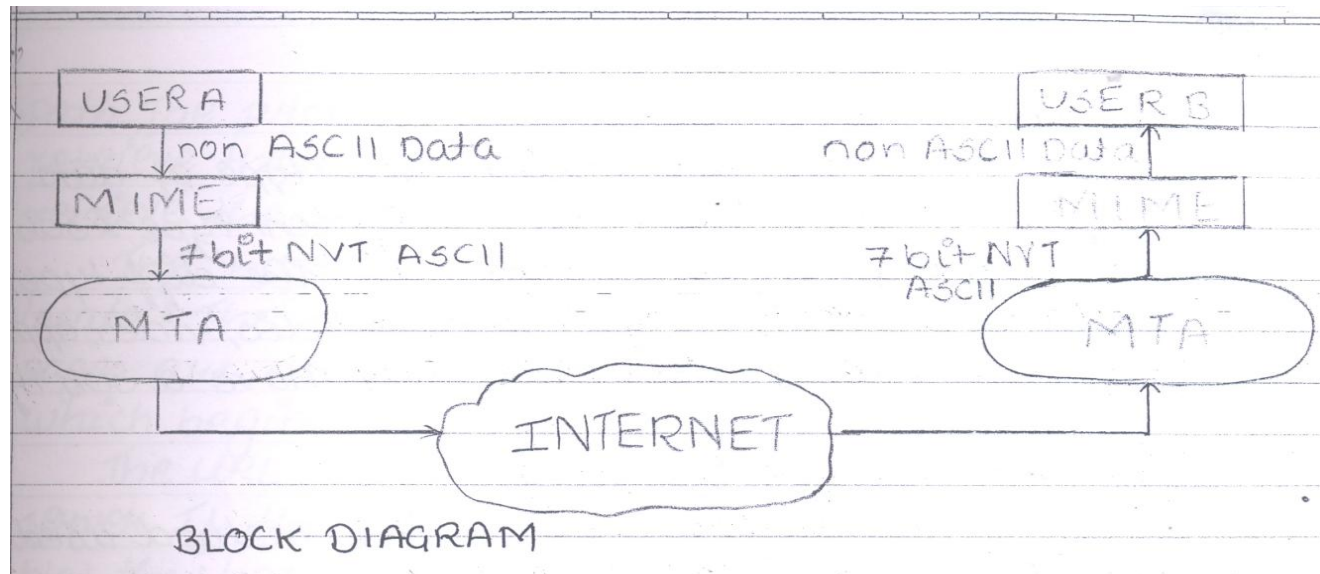 USER A
non ASCII Data
MIME
7 bit NVT ASCII
MTA
INTERNET
USER B
non ASCII Data
MIME
7 bit NVT
ASCII
MTA
BLOCK DIAGRAM